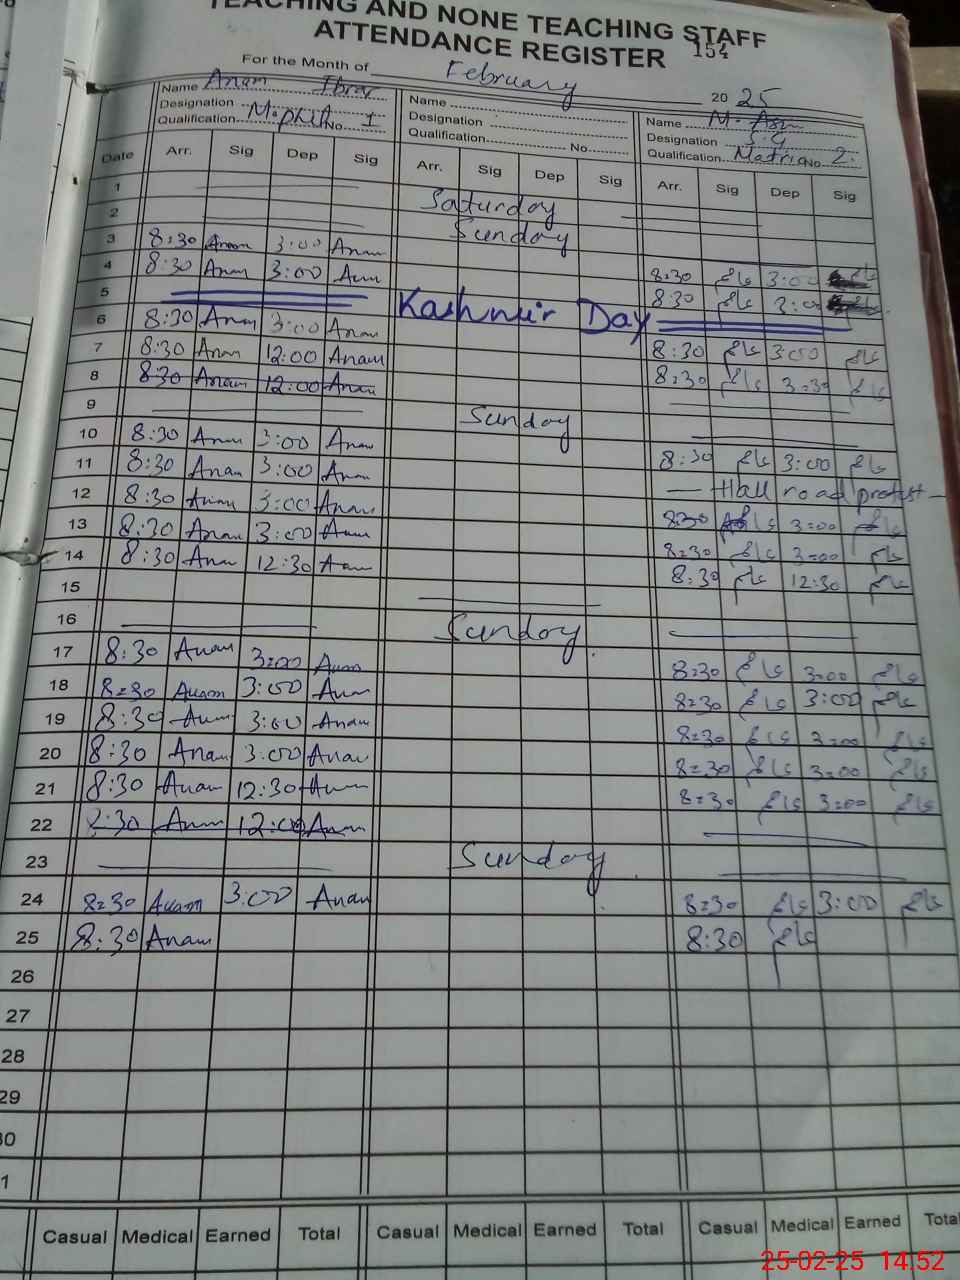 TEACHING AND NONE TEACHING STAFF
ATTENDANCE REGISTER 154
For the Month of February 2025
Name Anam Ibrar Name Name M.
Designation Designation Designation
Qualification M.phil No 1 Qualification No. Qualification Matric No 2.
Date Arr. Sig Dep Sig Arr. Sig Dep Sig Arr. Sig Dep Sig
1 Saturday
2 Sunday
3 8:30 Anam 3:00 Anam 8:30 3:00
4 8:30 Anam 3:00 Anam 8:30 3:00
5 Kashmir Day
6 8:30 Anam 3:00 Anam 8:30 3:00
7 8:30 Anam 12:00 Anam 8:30 3:30
8 8:30 Anam 12:00 Anam
9 Sunday
10 8:30 Anam 3:00 Anam 8:30 3:00
11 8:30 Anam 3:00 Anam Hall road protest
12 8:30 Anam 3:00 Anam 8:30 3:00
13 8:30 Anam 3:00 Anam 8:30 3:00
14 8:30 Anam 12:30 Anam 8:30 12:30
15
16 Sunday
17 8:30 Anam 3:00 Anam 8:30 3:00
18 8:30 Anam 3:00 Anam 8:30 3:00
19 8:30 Anam 3:00 Anam 8:30 3:00
20 8:30 Anam 3:00 Anam 8:30 3:00
21 8:30 Anam 12:30 Anam 8:30 3:00
22 8:30 Anam 12:00 Anam
23 Sunday
24 8:30 Anam 3:00 Anam 8:30 3:00
25 8:30 Anam 8:30
26
27
28
29
30
1
Casual Medical Earned Total Casual Medical Earned Total Casual Medical Earned Total
25-02-25 14.52